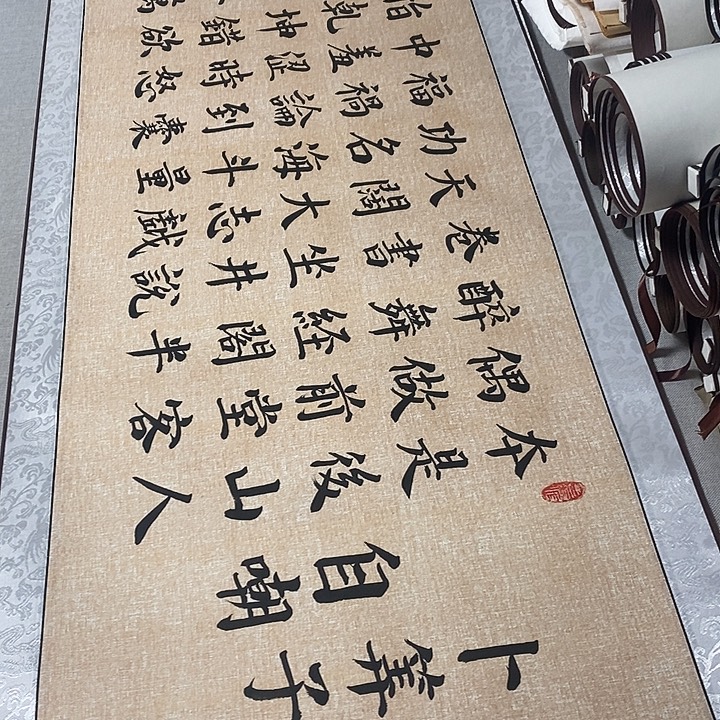 卜算子
自嘲
本是後山人
偶做前堂客
醉舞経閣半
卷書坐井說
天闊大志戲
功名海斗量
福禍論到囊
中羞澀時怒
指乾坤錯欲